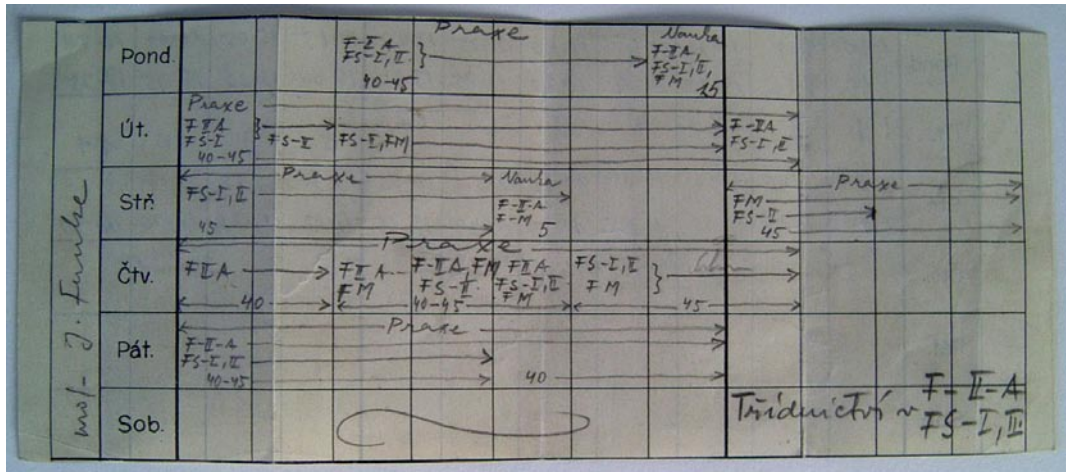 prof. J. Funke
Pond.
Praxe
F-II A
FS-I, II.
40-45
Nauka
F-II A,
FS-I, II,
FM
15
Út.
Praxe
F II A
FS-I
40-45
FS-II
FS-I, FM
F-IIA
FS-I, II
Stř.
Praxe
FS-I, II
45
Nauka
F-II-A
F-M
5
Praxe
FM
FS-II
45
Čtv.
Praxe
F II A
40
F II A
FM
F-II A, FM
FS-II.
40-45
F II A
FS-I, II
FM
FS-I, II
FM
45
Pát.
Praxe
F-II-A
FS-I, II
40-45
40
Sob.
Třídnictví v F-II-A
FS-I, II.